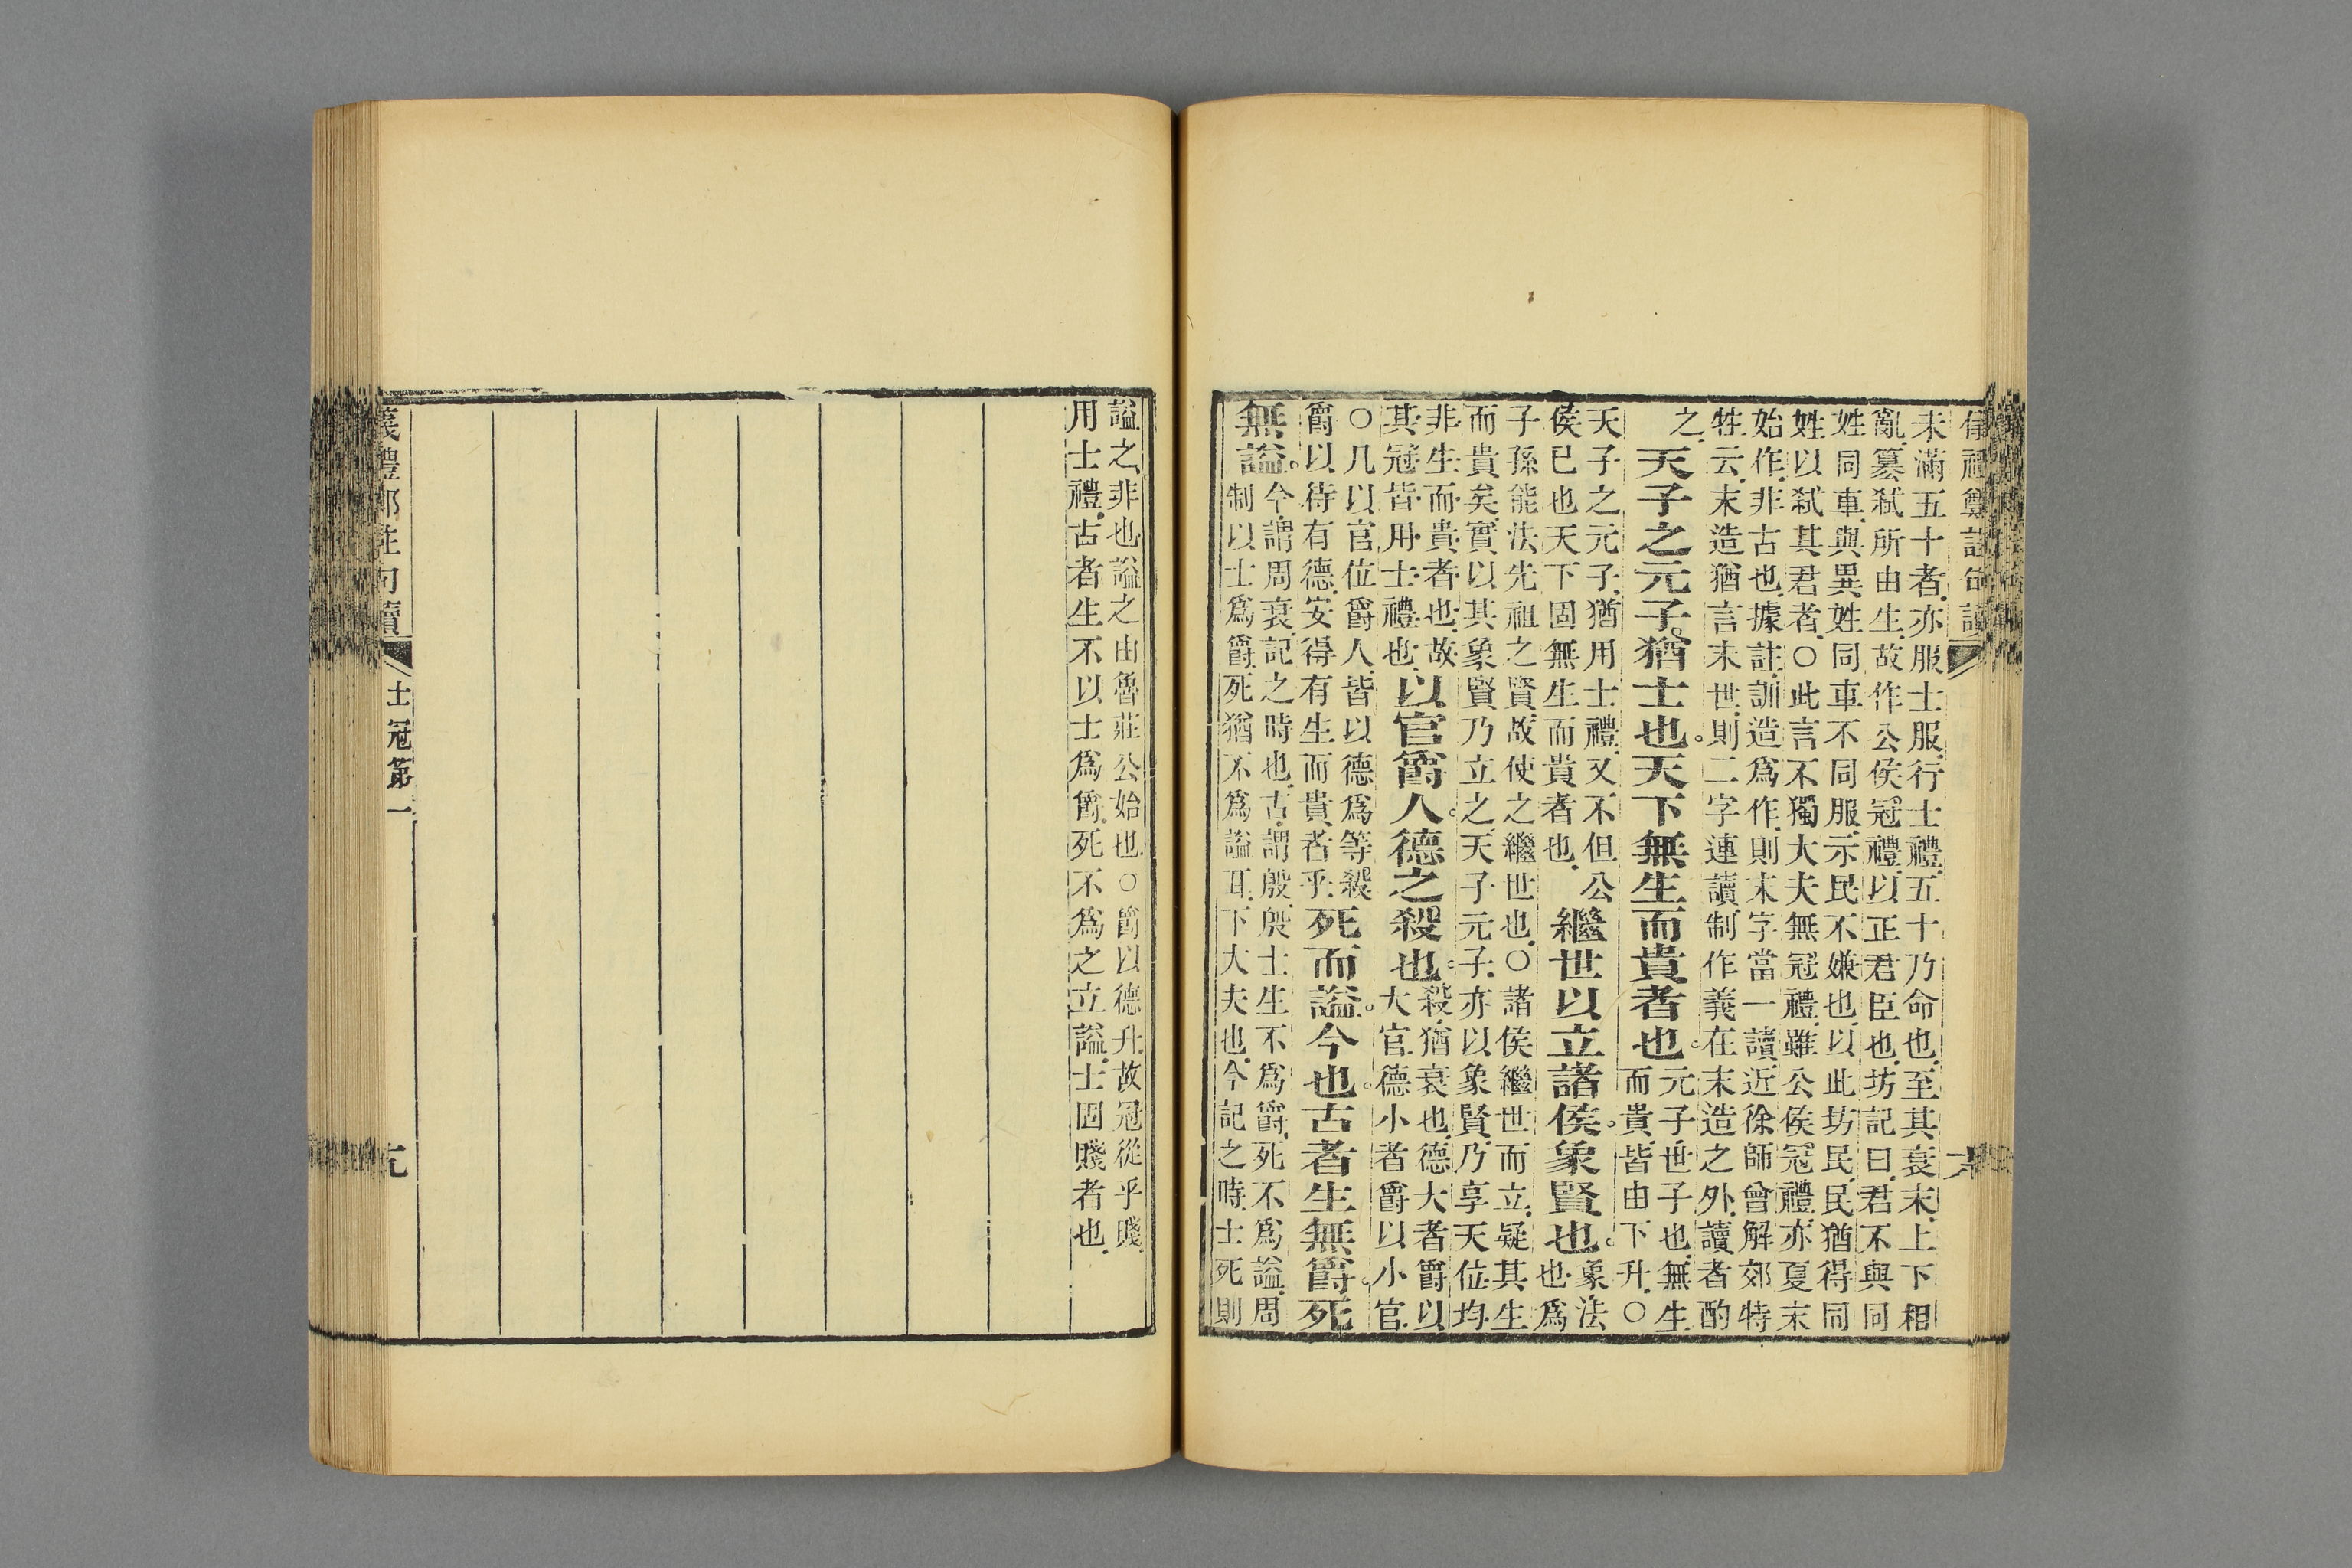 未滿五十者亦服士服行士禮五十乃命也至其衰末上下相
亂篡弒所由生故作公侯冠禮以正君臣也坊記曰君不與同
姓同車與異姓同車不同服示民不嫌也以此坊民民猶得同
姓以弒其君者○此言不獨大夫無冠禮雖公侯冠禮亦夏末
始作非古也據註訓造爲作則末字當一讀近徐師曾解郊特
牲云末造猶言末世則二字連讀制作義在末造之外讀者酌
之
天子之元子猶士也天下無生而貴者也
元子世子也無生
而貴皆由下升○
天子之元子猶用士禮又不但公
侯已也天下固無生而貴者也
繼世以立諸侯象賢也
象法
也爲
子孫能法先祖之賢故使之繼世也○諸侯繼世而立疑其生
而貴矣實以其象賢乃立之天子元子亦以象賢乃享天位均
非生而貴者也故
其冠皆用士禮也
以官爵人德之殺也
殺猶衰也德大者爵以
大官德小者爵以小官
○凡以官位爵人皆以德爲等殺
爵以待有德安得有生而貴者乎
死而謚今也古者生無爵死
無謚
今謂周衰記之時也古謂殷殷士生不爲爵死不爲謚周
制以士爲爵死猶不爲謚耳下大夫也今記之時士死則
謚之非也謚之由魯莊公始也○爵以德升故冠從乎賤
用士禮古者生不以士爲爵死不爲之立謚士固賤者也
儀禮鄭註句讀
士冠第一